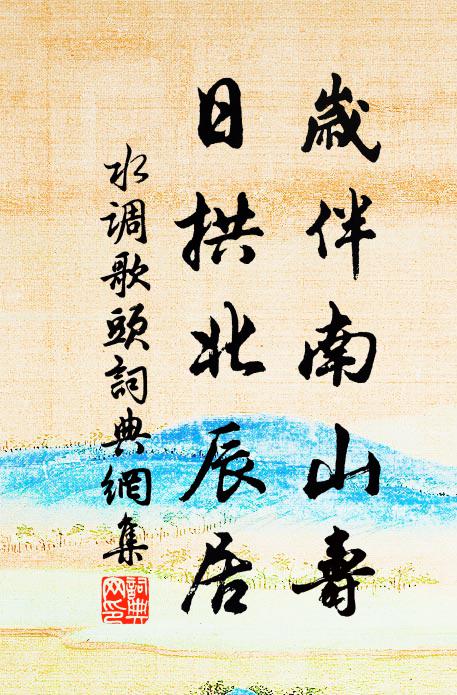 歲伴南山壽
日拱北辰居
水调歌頭詞典網集
詞典网印